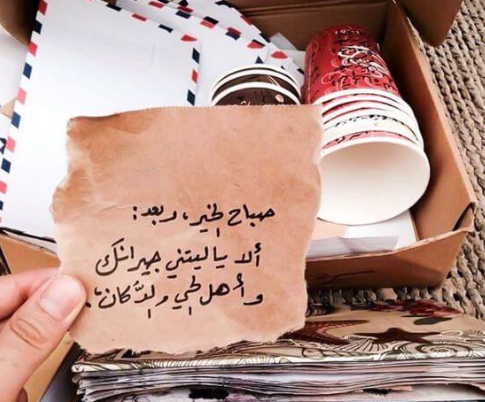 صباح الخير، وبعد:
ألا يا ليتني جيرانك
وأهل الحي والدكان".